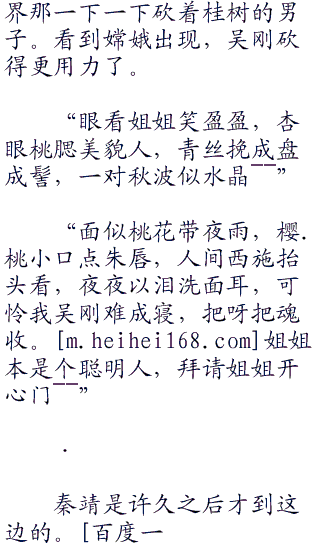 界那一下一下砍着桂树的男
子。看到嫦娥出现，吴刚砍
得更用力了。
“眼看姐姐笑盈盈，杏
眼桃腮美貌人，青丝挽成盘
成髻，一对秋波似水晶——”
“面似桃花带夜雨，樱.
桃小口点朱唇，人间西施抬
头看，夜夜以泪洗面耳，可
怜我吴刚难成寝，把呀把魂
收。[m.heihei168.com]姐姐
本是个聪明人，拜请姐姐开
心门——”
.
秦靖是许久之后才到这
边的。[百度一